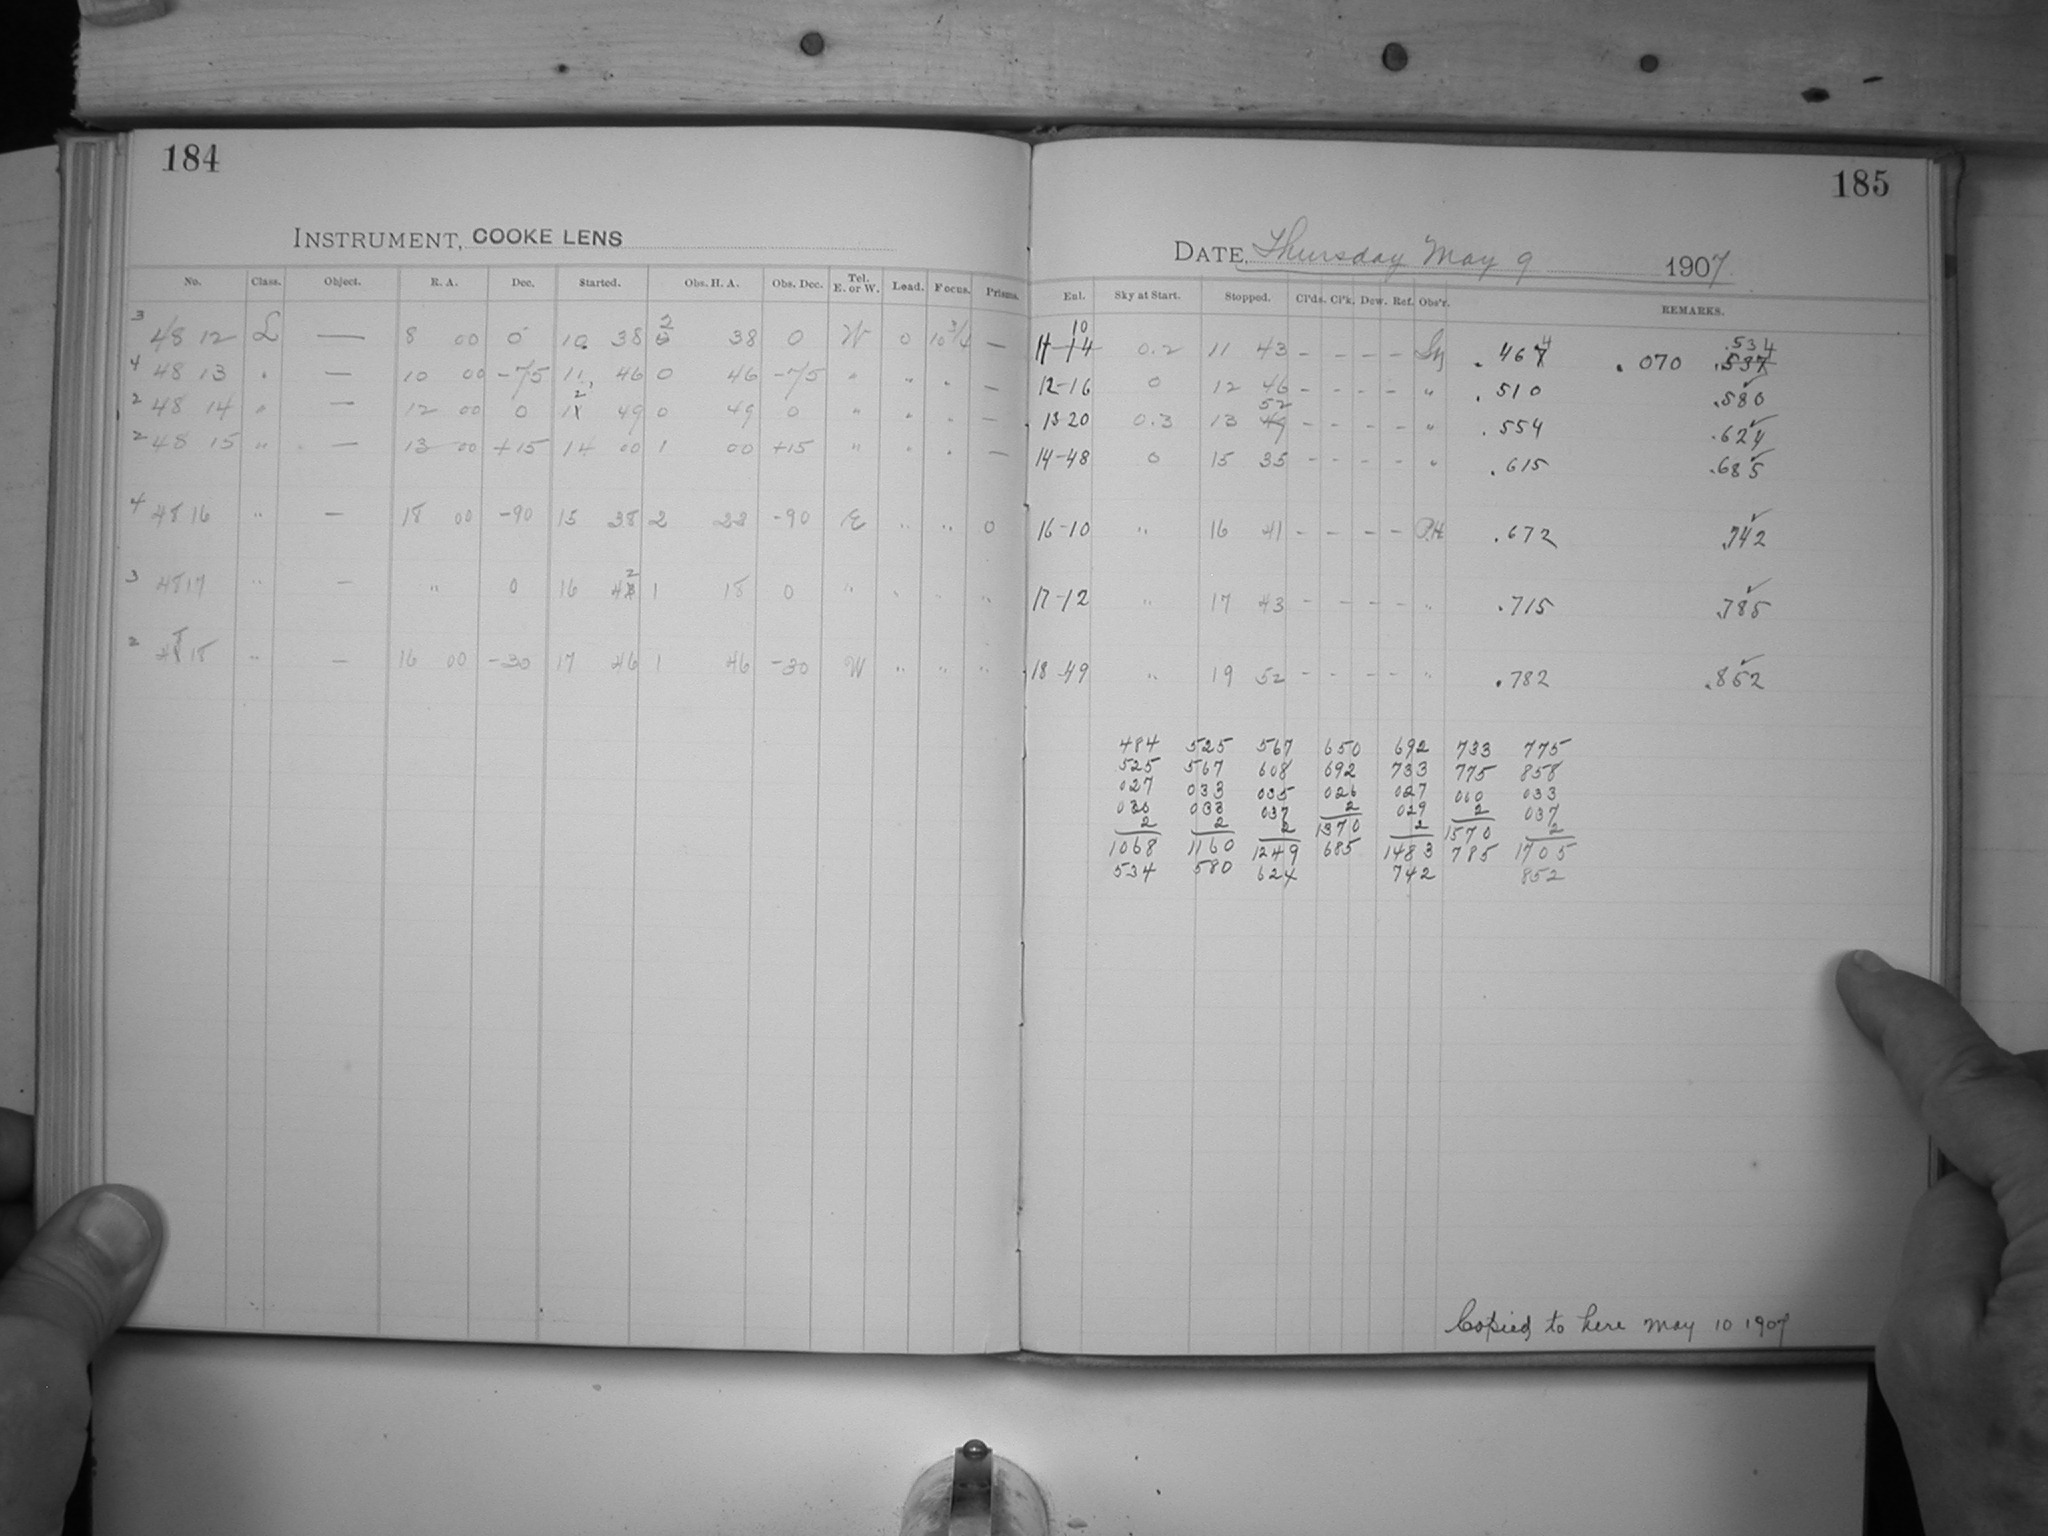 184
INSTRUMENT, COOKE LENS
No. Class. Object. R. A. Dec. Started. Obs. H. A. Obs. Dec. Tel. E. or W. Load. Focus. Prisms.
3 48 12 L — 8 00 0 10 38 2 38 0 W 0 10 3/4 —
4 48 13 " — 10 00 -75 11 46 0 46 -75 " " " —
2 48 14 " — 12 00 0 12 49 0 49 0 " " " —
2 48 15 " — 13 00 +15 14 00 1 00 +15 " " " —
4 48 16 " — 18 00 -90 15 38 2 -90 E " " 0
3 48 17 " — " 0 16 42 1 18 0 " " " "
2 48 18 " — 16 00 -30 17 46 1 46 -30 W " " "
185
DATE, Thursday May 9 1907
Ent. Sky at Start. Stopped. Cl'ds. Cl'k. Dew. Ref. Obs'r. REMARKS.
11-10 0.2 11 43 - - - - .464 .070 .534
12-16 0 12 46 - - - - " .510 .580
13 20 0.3 13 52 - - - - " .554 .624
14-48 0 15 35 - - - - " .615 .685
16-10 " 16 41 - - - - P.H. .672 .742
17-12 " 17 43 - - - - " .715 .785
18-49 " 19 52 - - - - " .782 .852
484 525 567 650 692 733 775
525 567 608 692 733 775 858
027 033 035 026 027 060 033
033 037 2 029 2 037
2 2 2 1370 2 1570 2
1068 1160 1249 685 1483 785 1705
534 580 624 742 852
Copied to here May 10 1907